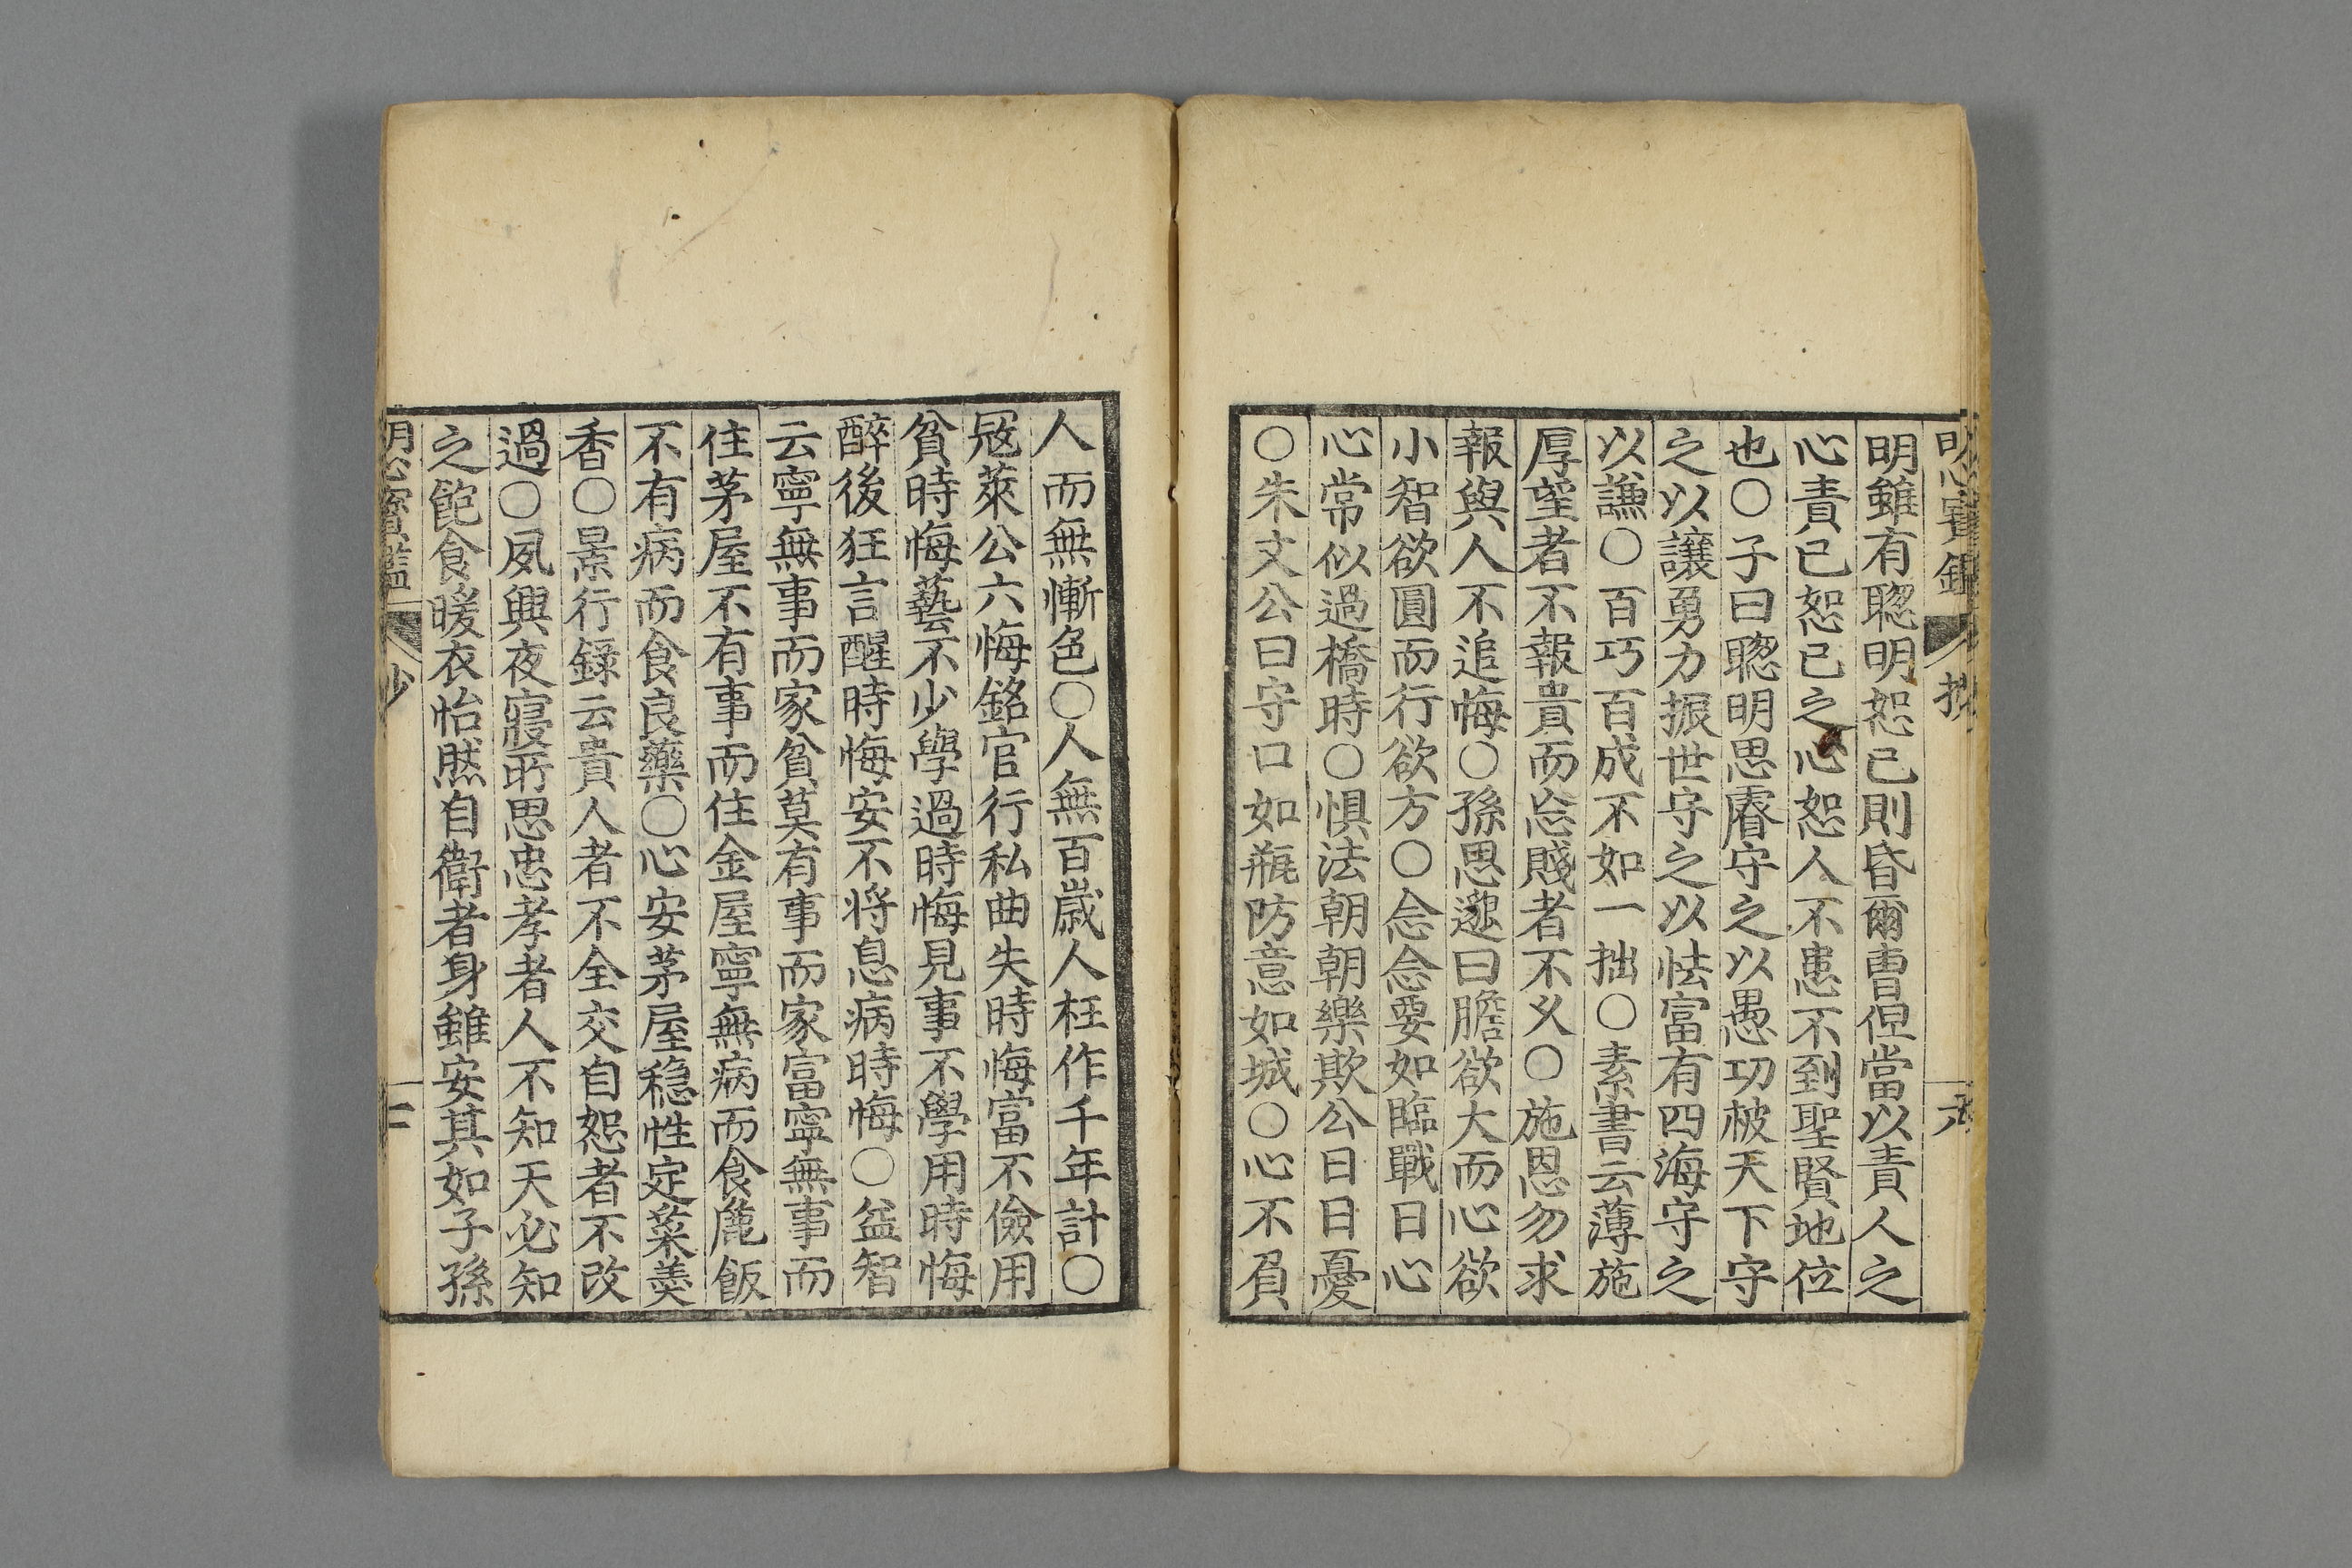 明心寶鑑 抄 九
明雖有聦明恕己則昏爾曹但當以責人之
心責己恕己之心恕人不患不到聖賢地位
也○子曰聦明思睿守之以愚功被天下守
之以讓勇力振世守之以怯富有四海守之
以謙○百巧百成不如一拙○素書云薄施
厚望者不報貴而忘賤者不乆○施恩勿求
報與人不追悔○孫思邈曰膽欲大而心欲
小智欲圓而行欲方○念念要如臨戰日心
心常似過橋時○惧法朝朝樂欺公日日憂
○朱文公曰守口如瓶防意如城○心不負
人而無慚色○人無百歲人枉作千年計○
冦萊公六悔銘官行私曲失時悔當不儉用
貧時悔藝不少學過時悔見事不學用時悔
醉後狂言醒時悔安不将息病時悔○益智
云寧無事而家貧莫有事而家富寧無事而
住茅屋不有事而住金屋寧無病而食麁飯
不有病而食良藥○心安茅屋穏性定菜羹
香○景行録云貴人者不全交自恕者不改
過○夙興夜寢所思忠孝者人不知天必知
之飽食暖衣怡然自衛者身雖安其如子孫
明心寶鑑 抄